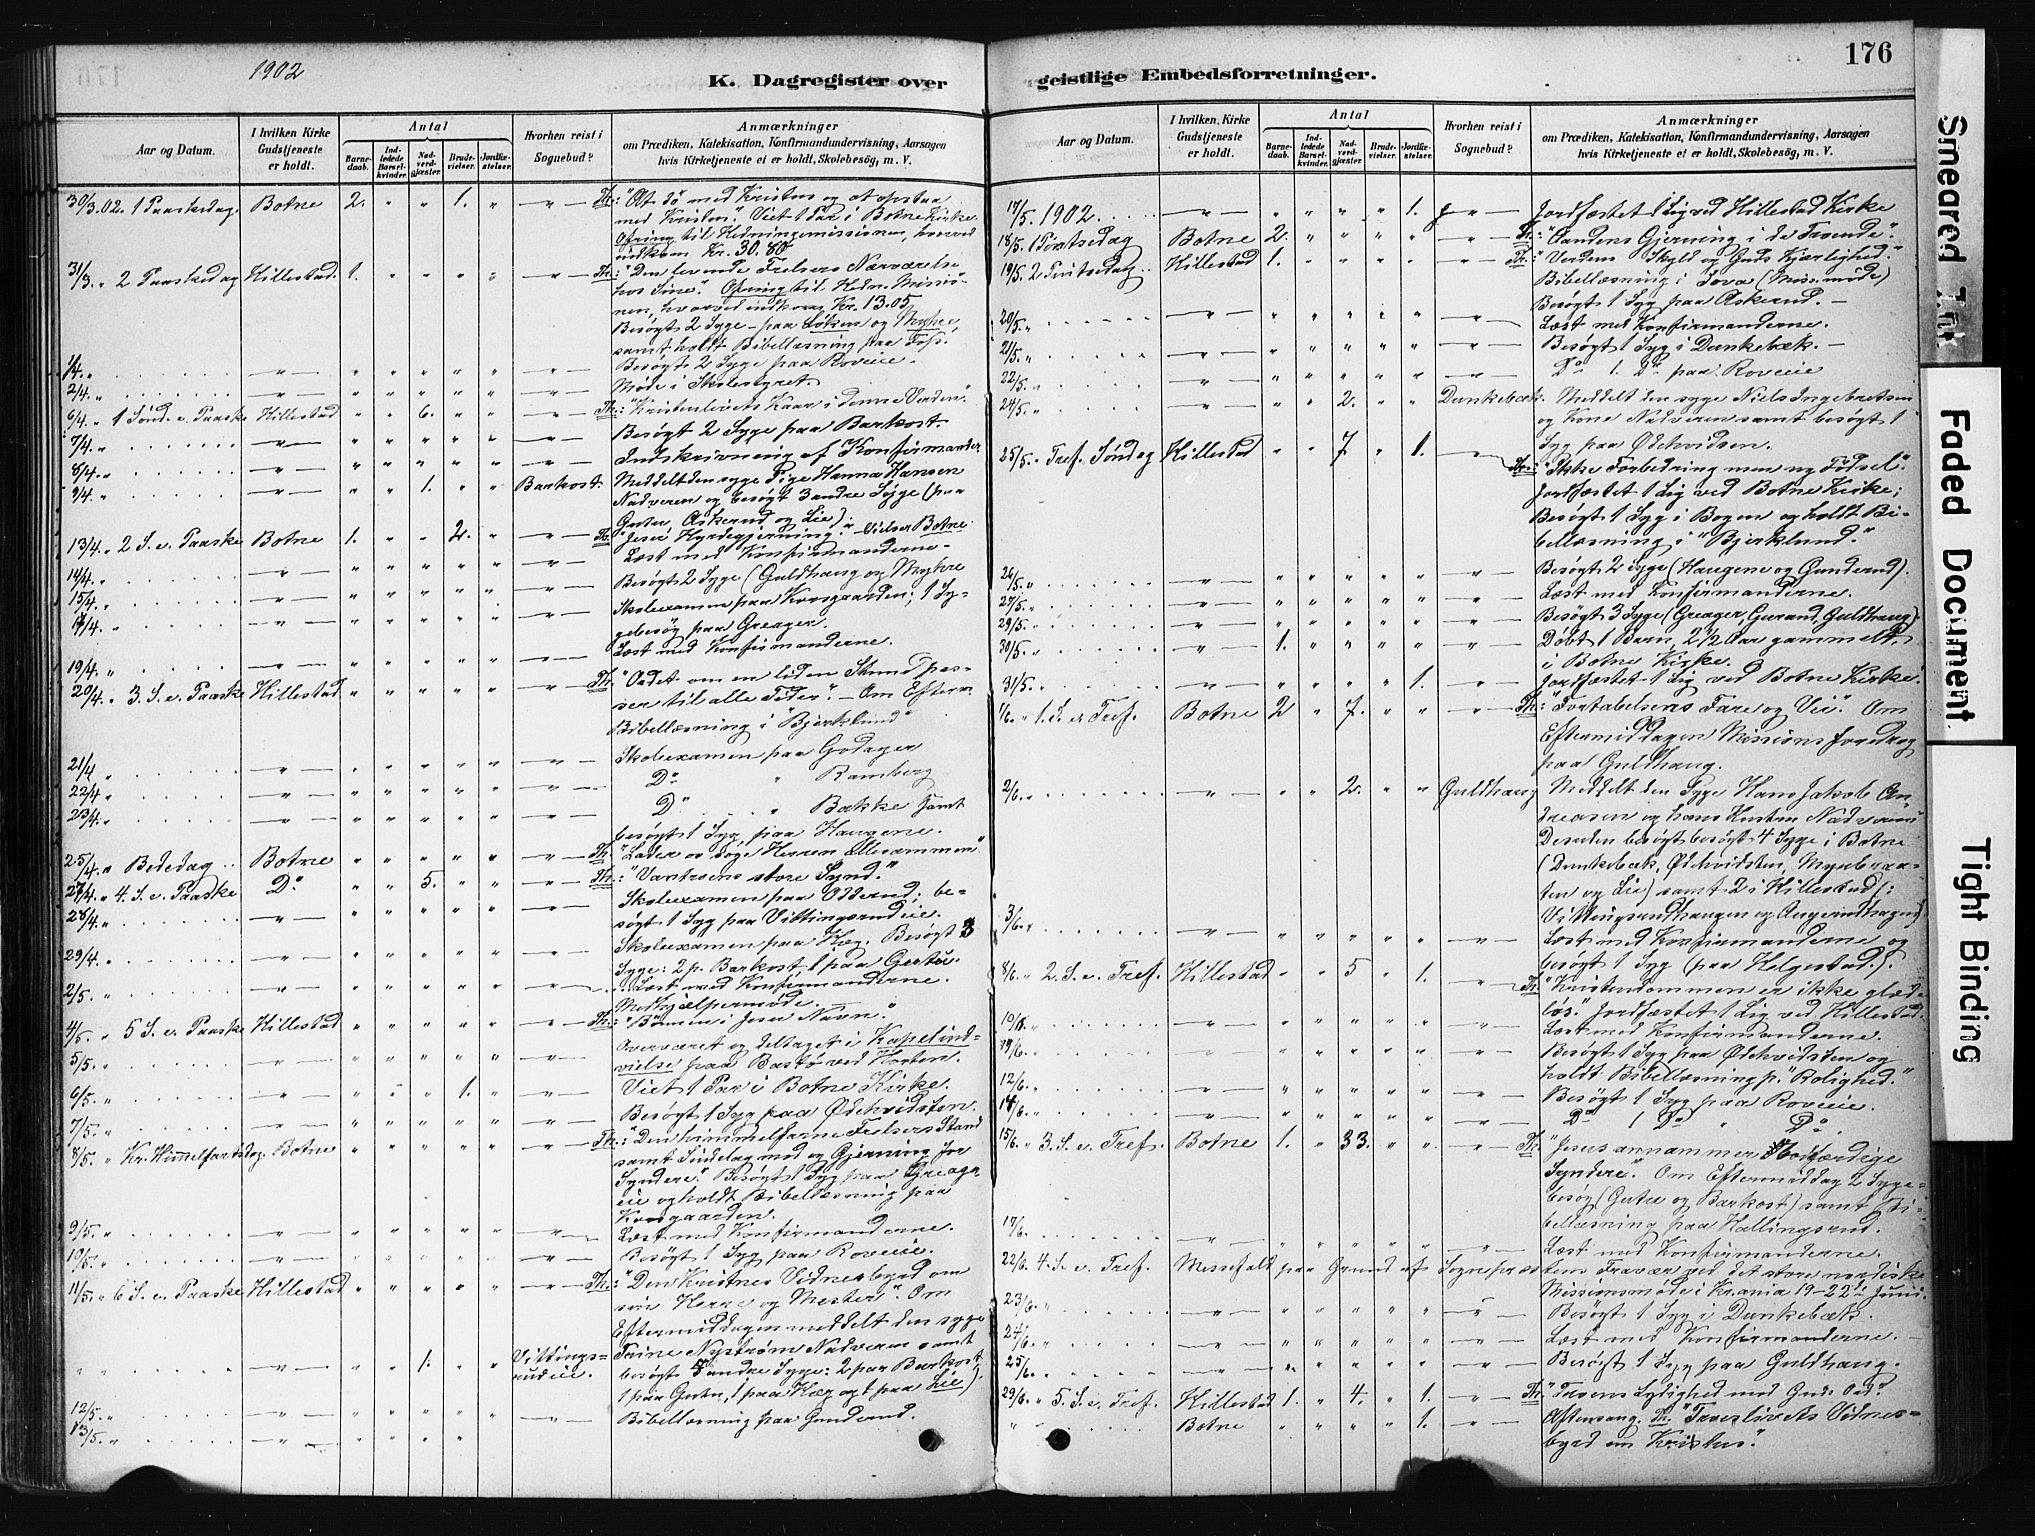 1902
K. Dagregister over
Aar og Datum.
I hvilken Kirke Gudstjeneste er holdt.
Antal
Barnedaab.
Indledede Barselkvinder.
Nadverdgjæster.
Brudevielser.
Jordfæstelser.
Hvorhen reist i Sognebud?
Anmærkninger
om Prædiken, Katekisation, Konfirmandundervisning, Aarsagen
hvis Kirketjeneste ei er holdt, Skolebesøg, m. V.
30/3. 02. 1 Paaskedag. Botne 2. " " 1. " — " — Th.: "At dø med Kristus og at opstaa
med Kristus". Viet 1 Par i Botne Kirke.
Ofring til Hedningemissionen, hvorved
indkom Kr. 30.80
31/3. " 2 Paaskedag Hillestad. 1. " " " " — " — Th.: "Den levende Frelsers Nærværelse
hos Sine". Ofring til Hedn. Missio-
nen, hvorved indkom Kr. 13.05
Besøgt 2 Syge - paa Løken og Myhre,
samt holdt Bibellæsning paa Fos.
1/4. " — " — " " " " " — " — Besøgt 2 Syge paa Roveie.
2/4. " — " — " " " " " — " — Møde i Skolestyret.
6/4. " 1 Sønd. e. Paaske Hillestad " " 6. " " — " — Th.: "Kristenlivets Kaar i denne Verden."
7/4. " — " — " " " " " — " — Besøgt 2 Syge paa Barkost.
8/4. " — " — " " " " " — " — Indskrivning af Konfirmander
9/4. " — " — " " 1. " " Barkost. Meddelt den syge Pige Hanna Hansen
Nadveren og besøgt 3 andre Syge (paa
Guter, Askerud og Lie).
13/4. " 2 S. e. Paaske Botne 1. " " 2. " — " — Th. "Jesu Hyrdegjerning." - Vielser Botne.
14/4. " — " — " " " " " — " — Læst med Konfirmanderne.
15/4. " — " — " " " " " — " — Besøgt 2 Syge (Guldhaug og Myhre
— " — " " " " " — " — Skoleexamen paa Korsgaarden; 1 Sy-
gebesøg paa Greager.
19/4. " — " — " " " " " — " — Læst med Konfirmanderne.
20/4. " 3 S. e. Paaske Hillestad " " " " " — " — Th. "Ordet om en liden Stund pas-
ser til alle Tider". - Om Efterm.
Bibellæsning i "Bjerklund"
21/4 " — " — " " " " " — " — Skoleexamen paa Godager
22/4 " — " — " " " " " — " — Do " Ramberg
23/4. " — " — " " " " " — " — Do " Bakke samt
besøgt 1 Syg paa Haugene.
25/4. " Bededag Botne " " " " " — " — Th. "Lader os søge Herren Allesammen"
27/4. " 4. S. e. Paaske Do " " 5. " " — " — Th.: "Vantroens store Synd."
28/4. " — " — " " " " " — " — Skoleexamen paa Odderud; be-
søgt 1 Syg paa Vittingsrudeie.
29/4. " — " — " " " " " — " — Skoleexamen paa Hæg. Besøgt 3
Syge: 2 p. Barkost, 1 paa Gertsø.
2/5. " — " — " " " " " — " — Læst med Konfirmanderne.
Medhjælpermøde.
4/5. " 5 S. e. Paaske Hillestad " " " " " — " — Th.: "Bønnen i Jesu Navn."
5/5. " — " — " " " " " — " — Overværet og deltaget i Kapelind-
vielse paa Bastø ved Horten.
6/5. " — " — " " " 1. " — " — Viet 1 Par i Botne Kirke.
7/5. " — " — " " " " " — " — Besøgt 1 Syg paa Ødekvidsten.
8/5. " Kr. Himmelfartsdag. Botne " " " " " — " — Th.: "Den himmelfarne Frelsers Stand
samt Sindelag mod og Gjerning for
Syndere." Besøgt 1 Syg paa Greager-
eie og holdt Bibellæsning paa
Korsgaarden.
9/5. " — " — " " " " " — " — Læst med Konfirmanderne.
10/5. " — " — " " " " " — " — Besøgt 1 Syg paa Roveie.
11/5. " 6 S. e. Paaske Hillestad " " " " " — " — Th.: "Den Kristnes Vidnesbyrd om
sin Herre og Mester". Om
Eftermiddagen meddelt den syge
" " " " 1. " " Vittings-
rudeie. Trine Nystrøm Nadveren samt
besøgt 5 andre Syge: 2 paa Barkost,
1 paa Guten, 1 paa Hæg og 1 paa Lie).
12/5. " — " — " " " " " — " — Bibellæsning paa Gunderud.
13/5. " — " — " " " "
geistlige Embedsforretninger.
176
Aar og Datum.
I hvilken Kirke Gudstjeneste er holdt.
Antal
Barnedaab.
Indledede Barselkvinder.
Nadverdgjæster.
Brudevielser.
Jordfæstelser.
Hvorhen reist i Sognebud?
Anmærkninger
om Prædiken, Katekisation, Konfirmandundervisning, Aarsagen
hvis Kirketjeneste ei er holdt, Skolebesøg, m. V.
17/5. 1902. — " — " " " " 1. — " — Jordfæstet 1 Lig ved Hillestad Kirke
18/5. 1 Pintsedag Botne 2. " " " " — " — Th.: "Aandens Gjerning i de Troende".
19/5. 2 Pintsedag Hillestad 1. " " " " — " — Th.: "Verdens Skyld og Guds Kjærlighed."
Bibellæsning i (Miss.møde)
Besøgt 1 Syg paa Askerud. -
20/5. " — " — " " " " " — " — Læst med Konfirmanderne.
21/5. " — " — " " " " " — " — Besøgt 1 Syg i Dunkebæk. -
22/5. " — " — " " " " " — " — Do 1 Do paa Roveie
24/5. " — " — " " 2. " " Dunkebæk. Meddelt den syge Niels Ingebretsen
og Kone Nadveren samt besøgt 1
Syg paa Ødekvidsten.
25/5. " Tref. Søndag Hillestad " " 7 " 1. — " — Th.: "Ikke Forbedring men ny Fødsel".
Jordfæstet 1 Lig ved Botne Kirke;
Besøgt 1 Syg i Bogen og holdt Bi-
bellæsning i "Bjerklund."
26/5. " — " — " " " " " — " — Besøgt 2 Syge (Haugene og Gunderud).
27/5. " — " — " " " " " — " — Læst med Konfirmanderne.
29/5. " — " — " " " " " — " — Besøgt 3 Syge (Greager, Gurand, Guldhaug)
30/5. " — " — 1. " " " " — " — Døbt 1 Barn, 2 1/2 Aar gammelt,
i Botne Kirke.
31/5. " — " — " " " " 1. — " — Jordfæstet 1 Lig ved Botne Kirke.
1/6. " 1. S. e. Tref. Botne 2 " 7. " " — " — Th.: "Fortabelsens Fare og Vei". Om
Eftermiddagen Missionsforedrag
paa Guldhaug.
2/6. " — " — " " 2. " " Guldhaug Meddelt den Syge Hans Jakob An-
dreasen og hans Hustru Nadveren
Desuden besøgt besøgt 4 Syge i Botne
(Dunkebæk, Ødekvidsten, Myrebraa-
ten og Lie) samt 2 i Hillestad (:
Vittingsrudhaugen og Angerudhagen)
3/6. " — " — " " " " " — " — Læst med Konfirmanderne og
besøgt 1 Syg (paa Helgestad.).
8/6. " 2. S. e. Tref. Hillestad " " 5 " 1. — " — Th.: "Kristendommen er ikke glæde-
løs". Jordfæstet 1 Lig ved Hillestad.
10/6. " — " — " " " " " — " — Læst med Konfirmanderne.
— " — " " " " " — " — Besøgt 1 Syg paa Ødekvidsten og
holdt Bibellæsning p. "Rolighed."
12/6. " — " — " " " " " — " — Besøgt 1 Syg paa Roveie.
14/6. " — " — " " " " " — " — Do 1 Do " Do.
15/6. " 3. S. e. Tref. Botne 1. " 33. " " — " — Th. "Jesus annammer
Syndere". Om Eftermiddag 2 Syge-
besøg (Gutu og Barkost) samt Bi-
bellæsning paa Hallingsrud.
17/6. — " — " " " " " — " — Læst med Konfirmanderne.
22/6. 4. S. e. Tref. Messefald paa Grund af Sognepræs-
tens Fravær ved det store nordiske
Missionsmøde i Krania 19-22de Juni.
23/6. " — " — " " " " " — " — Besøgt 1 Syg i Dunkebæk.
24/6. " — " — " " " " " — " — Læst med Konfirmanderne. -
25/6. " — " — " " " " " — " — Besøgt 1 Syg paa Guldhaug.
29/6. " 5. S. e. Tref. Hillestad 1. " 4. " 1. — " — Th. "Troens Lydighed mod Guds Ord".
" Botne " " " " 1. — " — Aftensang. Th. "Troeslivets Vidnes-
byrd om Kristus".
Smeared Ink
Faded Document
Tight Binding